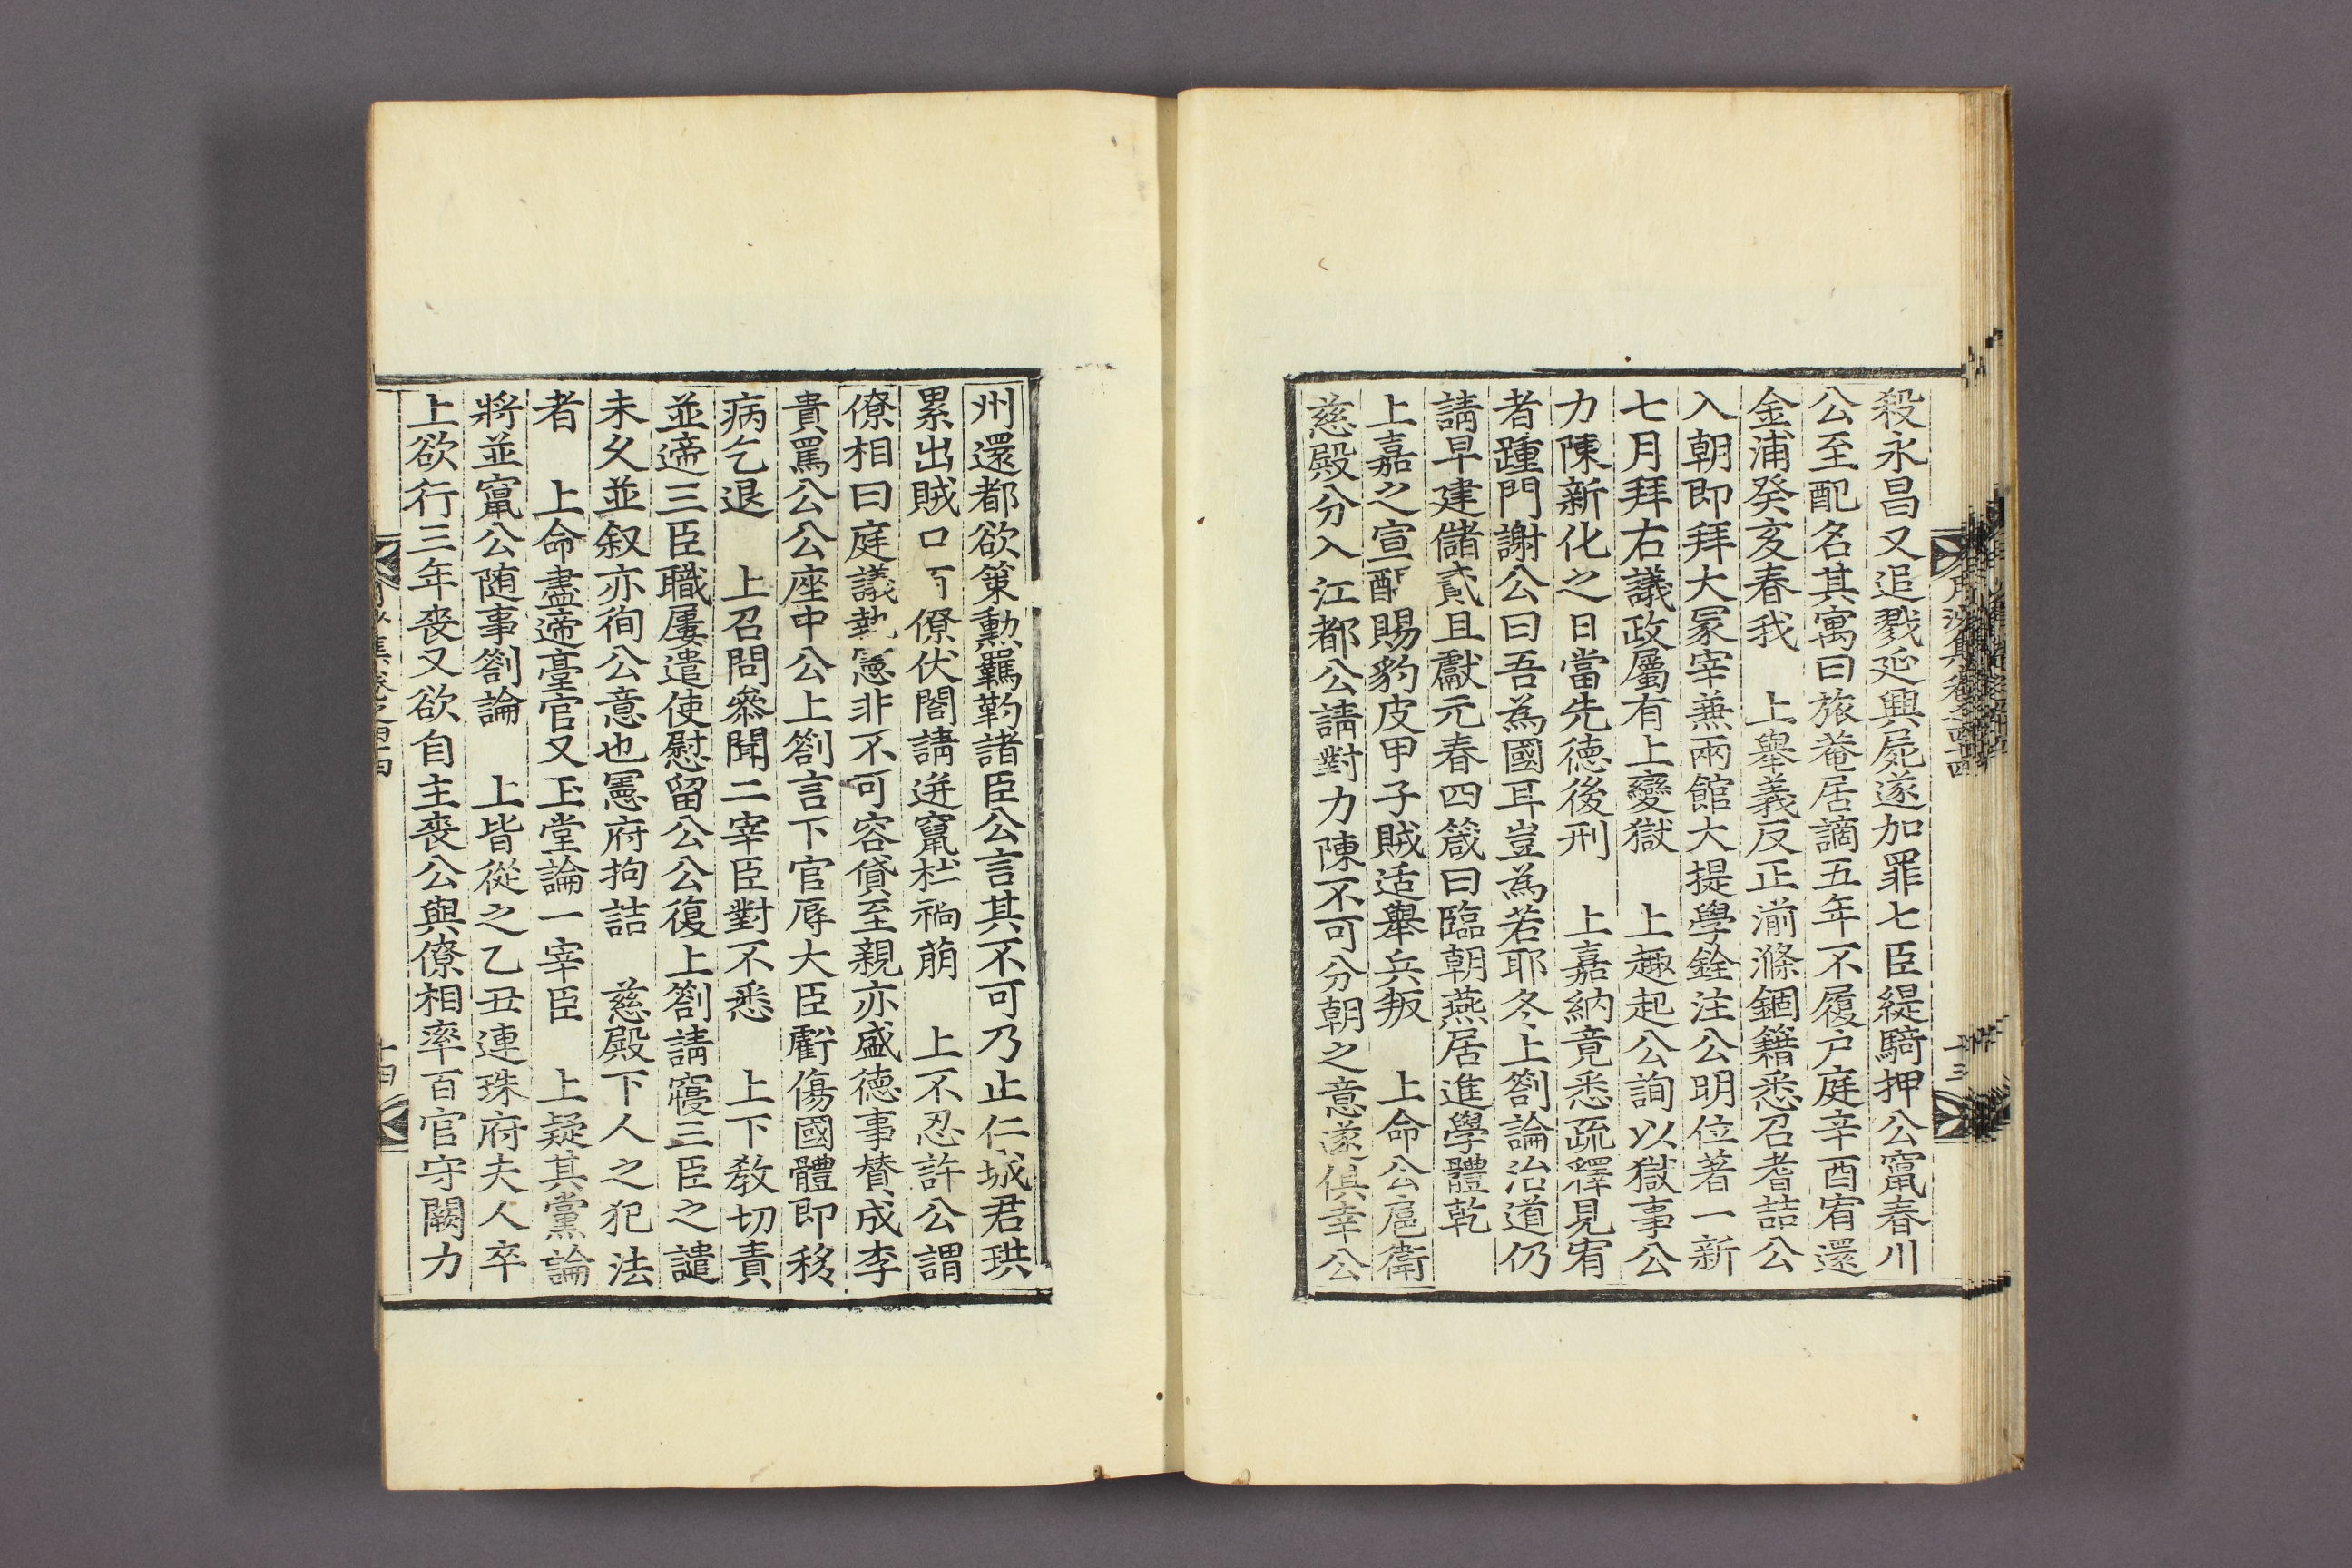 殺永昌又追戮延興屍遂加罪七臣緹騎押公竄春川
公至配名其寓曰旅菴居謫五年不履户庭辛酉宥還
金浦癸亥春我 上舉義反正湔滌錮籍悉召耆喆公
入朝即拜大冢宰兼兩館大提學銓注公明位著一新
七月拜右議政屬有上變獄 上趣起公詢以獄事公
力陳新化之日當先德後刑 上嘉納竟悉疏釋見宥
者踵門謝公曰吾為國耳豈為若耶冬上劄論治道仍
請早建儲貳且獻元春四箴曰臨朝燕居進學體乾
上嘉之宣醖賜豹皮甲子賊适舉兵叛 上命公扈衛
慈殿分入江都公請對力陳不可分朝之意遂俱幸公
州還都欲策勳羈靮諸臣公言其不可乃止仁城君珙
累出賊口百僚伏閤請迸竄杜禍萠 上不忍許公謂
僚相曰庭議執憲非不可容貸至親亦盛德事賛成李
貴罵公公座中公上劄言下官辱大臣虧傷國體即移
病乞退 上召問叅聞二宰臣對不悉 上下敎切責
並遞三臣職屢遣使慰留公公復上劄請寢三臣之譴
未久並叙亦徇公意也憲府拘詰 慈殿下人之犯法
者 上命盡遞臺官又玉堂論一宰臣 上疑其黨論
將並竄公随事劄論 上皆從之乙丑連珠府夫人卒
上欲行三年喪又欲自主喪公與僚相率百官守闕力
月沙集卷之四十四